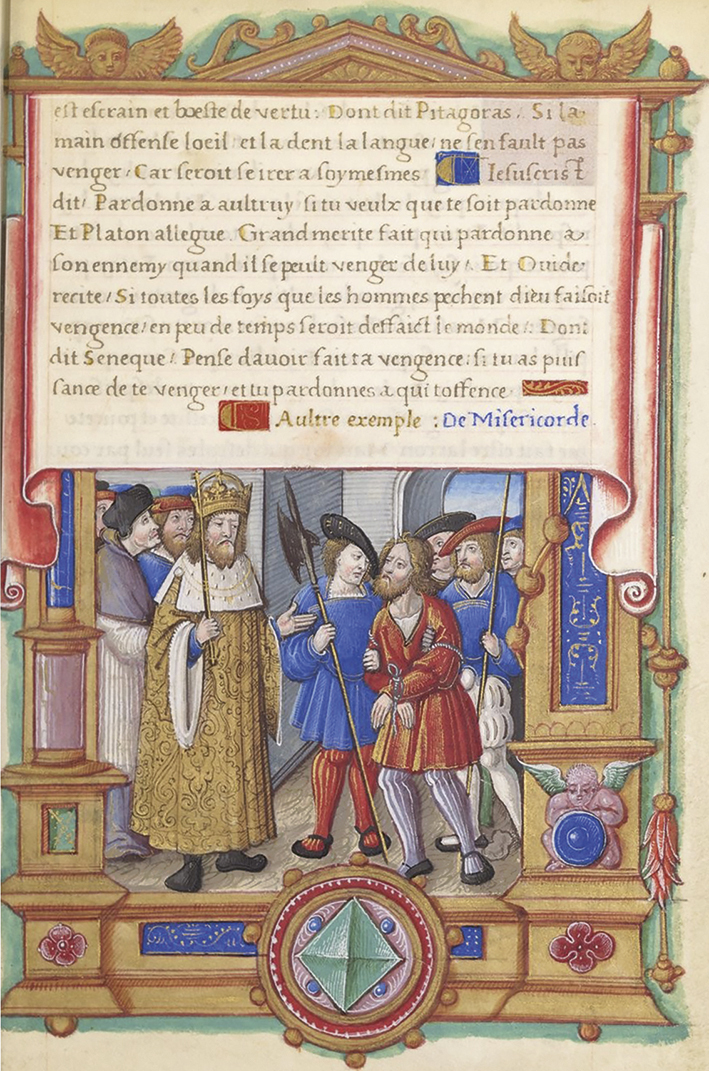 est escrain et boeste de vertu : Dont dit Pitagoras / Si la
main offense loeil et la dent la langue / ne sen fault pas
venger / Car seroit se irer a soy mesmes Iesuscrist
dit / Pardonne a aultruy si tu veulx que te soit pardonne
Et Platon allegue Grand merite fait qui pardonne a
son ennemy quand il se peult venger de luy / Et Ouide
recite / Si toutes les foys que les hommes pechent dieu faisoit
vengence / en peu de temps seroit deffaict le monde : Dont
dit Seneque / Pense dauoir fait ta vengence : si tu as puis
sance de te venger / et tu pardonnes a qui toffence
Aultre exemple : De Misericorde